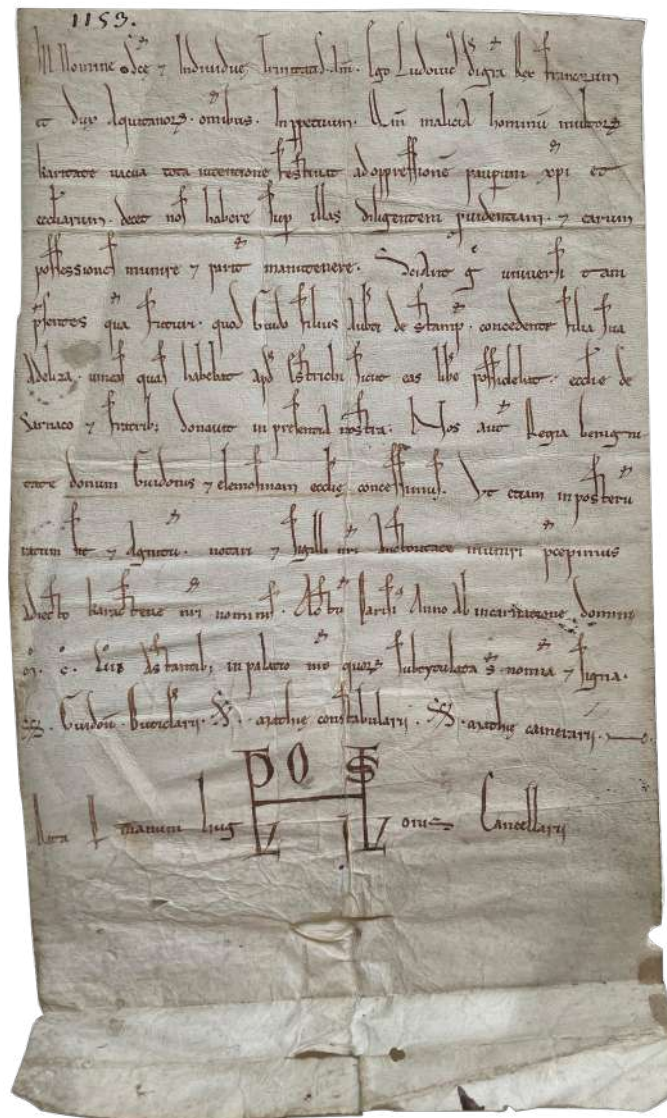 1153.
In Nomine Sce ⁊ Individuę Trinitatis. Am. Ego Ludovic dī gra Rex francorum
et dux Aquitanorꝝ. omibus. Inppetuum. Qm malicia hominū multorꝝ
karitate vacua tota intentione festinat ad oppressionē paupum xpi et
eccłiarum. decet nos habere sup illas diligentem pvidentiam. ⁊ earum
possessiones munire ⁊ manutenere. Sciant gͦ universi tam
psentes qua futuri. quod Guido filius de stamp. concedente filia sua
Adeliza. vineas quas habebat apd sicut eas libe possidebat. ecclie de
Sarnaco ⁊ fratrib; donavit in presentia nostra. Nos aut Regia benigni
tate donum Guidonis ⁊ elemosinam ecclię concessimus. Ut etiam in posterū
ratum sit ⁊ notari ⁊ sigilli nri Auctoritate muniri pcepimus
adiecto karactere nri nominis. Actū Parisi Anno Ab incarnatione domini
oͦ. cͦ. Astantib; in palatio nro quorꝝ subtitulata s nomina ⁊ signa.
S. Guidoñ. Buticularii. S. mathię constabularii. S. mathię camerarii.
Data P manum hug onis Cancellarii